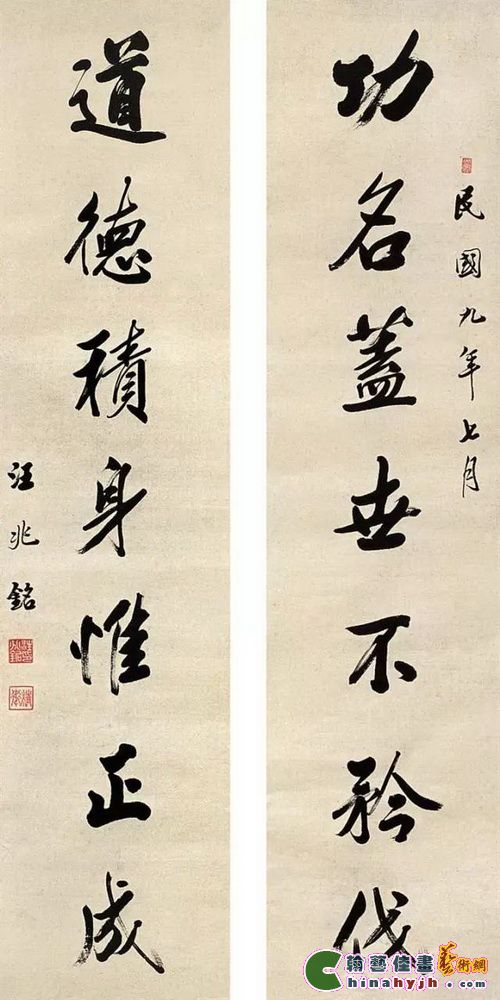 民國九年七月
功名蓋世不矜伐
道德積身惟正成
汪兆銘
翰藝佳畫藝術網
Chinahyjh.com